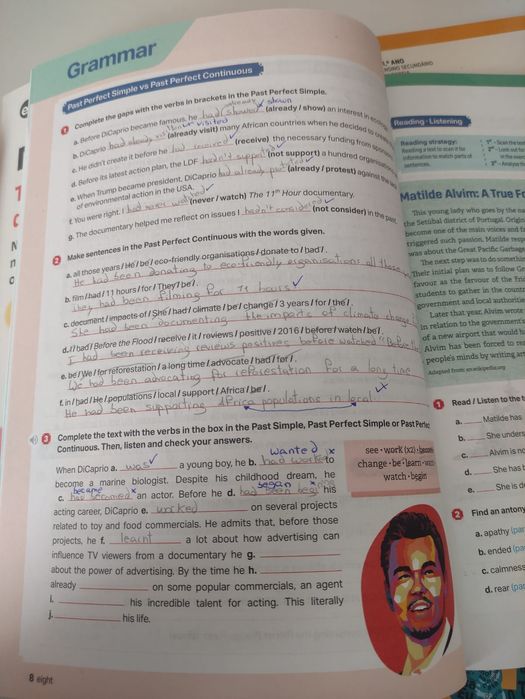 Grammar
Past Perfect Simple vs Past Perfect Continuous
1 Complete the gaps with the verbs in brackets in the Past Perfect Simple.
already shown
a. Before DiCaprio became famous, he had showed (already / show) an interest in
visited
b. DiCaprio had already (already visit) many African countries when he decided to
c. He didn't create it before he had received (receive) the necessary funding from
d. Before its latest action plan, the LDF hadn't supported (not support) a hundred
e. When Trump became president, DiCaprio had already protested (already / protest) against the
of environmental action in the USA.
f. You were right. I had never watched (never / watch) The 11th Hour documentary.
g. The documentary helped me reflect on issues I hadn't considered (not consider) in the past.
2 Make sentences in the Past Perfect Continuous with the words given.
a. all those years / He / be / eco-friendly organisations / donate to / had / .
He had been donating to eco-friendly organisations all those
b. film / had / 11 hours / for / They / be / .
They had been filming for 11 hours
c. document / impacts of / She / had / climate / be / change / 3 years / for / the / .
She had been documenting the impacts of climate change
d. I / had / Before the Flood / receive / it / reviews / positive / 2016 / before / watch / be / .
I had been receiving reviews positives before watched "Before the
e. be / We / for reforestation / a long time / advocate / had / for / .
We had been advocating for reforestation for a long time
f. in / had / He / populations / local / support / Africa / be / .
He had been supporting Africa populations in local
3 Complete the text with the verbs in the box in the Past Simple, Past Perfect Simple or Past Perfect
Continuous. Then, listen and check your answers.
wanted x
When DiCaprio a. was a young boy, he b. had work to
become a marine biologist. Despite his childhood dream, he
became x began x
c. had becamed an actor. Before he d. had been begi his
acting career, DiCaprio e. worked on several projects
related to toy and food commercials. He admits that, before those
projects, he f. learnt a lot about how advertising can
influence TV viewers from a documentary he g.
about the power of advertising. By the time he h.
already on some popular commercials, an agent
i. his incredible talent for acting. This literally
j. his life.
see • work (x2) • become
change • be • learn • want
watch • begin
8 eight
1.º ANO
ENSINO SECUNDÁRIO
Reading • Listening
Reading strategy:
Reading a text to scan it for
information to match parts of
sentences.
1st - Scan the text
2nd - Look out for
3rd - Analyse
Matilde Alvim: A True F
This young lady who goes by the
the Setúbal district of Portugal.
become one of the main voices and
triggered such passion. Matilde
was about the Great Pacific Garbage
The next step was to do something
Their initial plan was to follow Gr
favour as the favour of the Fri
students to gather in the country
government and local authorities
Later that year, Alvim wrote
in relation to the government
of a new airport that would
Alvim has been forced to
people's minds by writing
1 Read / Listen to the t
a. Matilde has
b. She unders
c. Alvim is no
d. She has t
e. She is d
2 Find an antony
a. apathy (par
b. ended (pa
c. calmness
d. rear (par